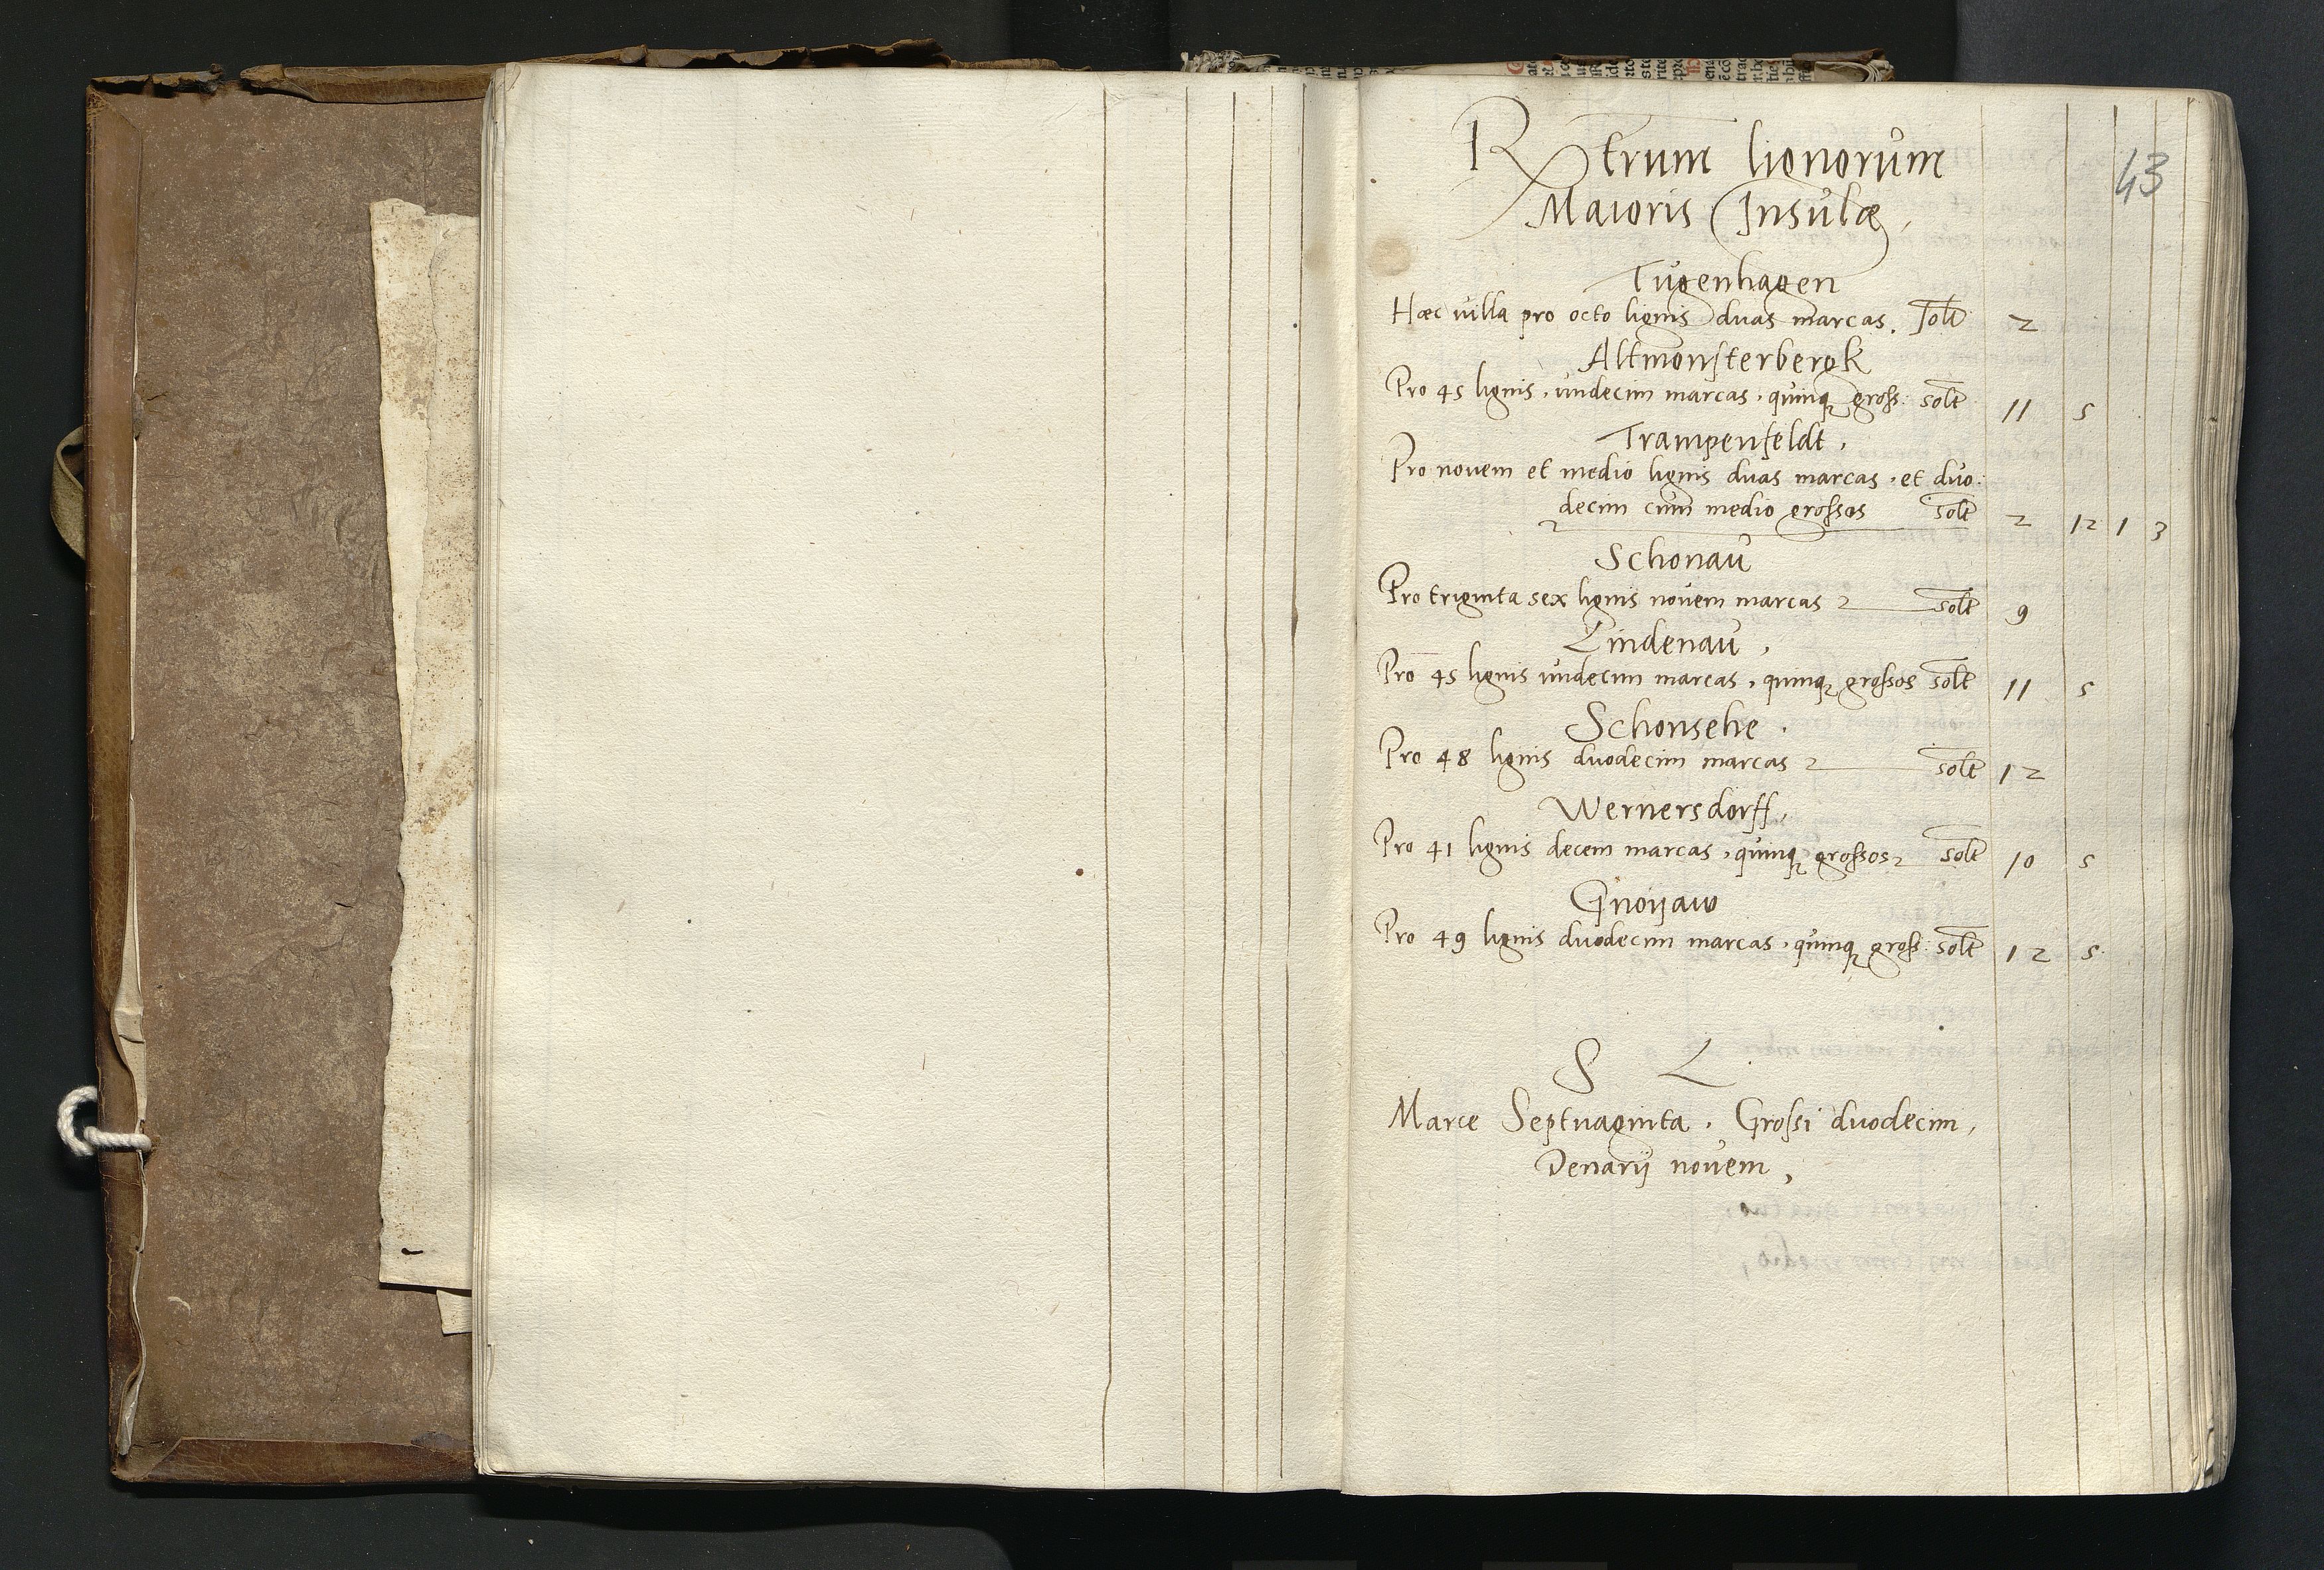 43
Rgtrum lignorum
Maioris Insulæ,
Tugenhagen
Hæc villa pro octo lignis duas marcas. solt 2
Altmonsterbergk
Pro 45 lignis, undecim marcas, quinq gross: solt 11 5
Trampenfeldt,
Pro novem et medio lignis duas marcas, et duo:
decim cum medio grossos solt 2 12 1 3
Schonau
Pro triginta sex lignis novem marcas solt 9
Lindenau,
Pro 45 lignis undecim marcas, quinq grossos solt 11 5
Schonsehe.
Pro 48 lignis duodecim marcas solt 12
Wernersdorff,
Pro 41 lignis decem marcas, quinq grossos solt 10 5
Gnoyaw
Pro 49 lignis duodecim marcas, quinq gross: solt 12 5
S L
Marce Septuaginta. Grossi duodecim,
Denarij novem,